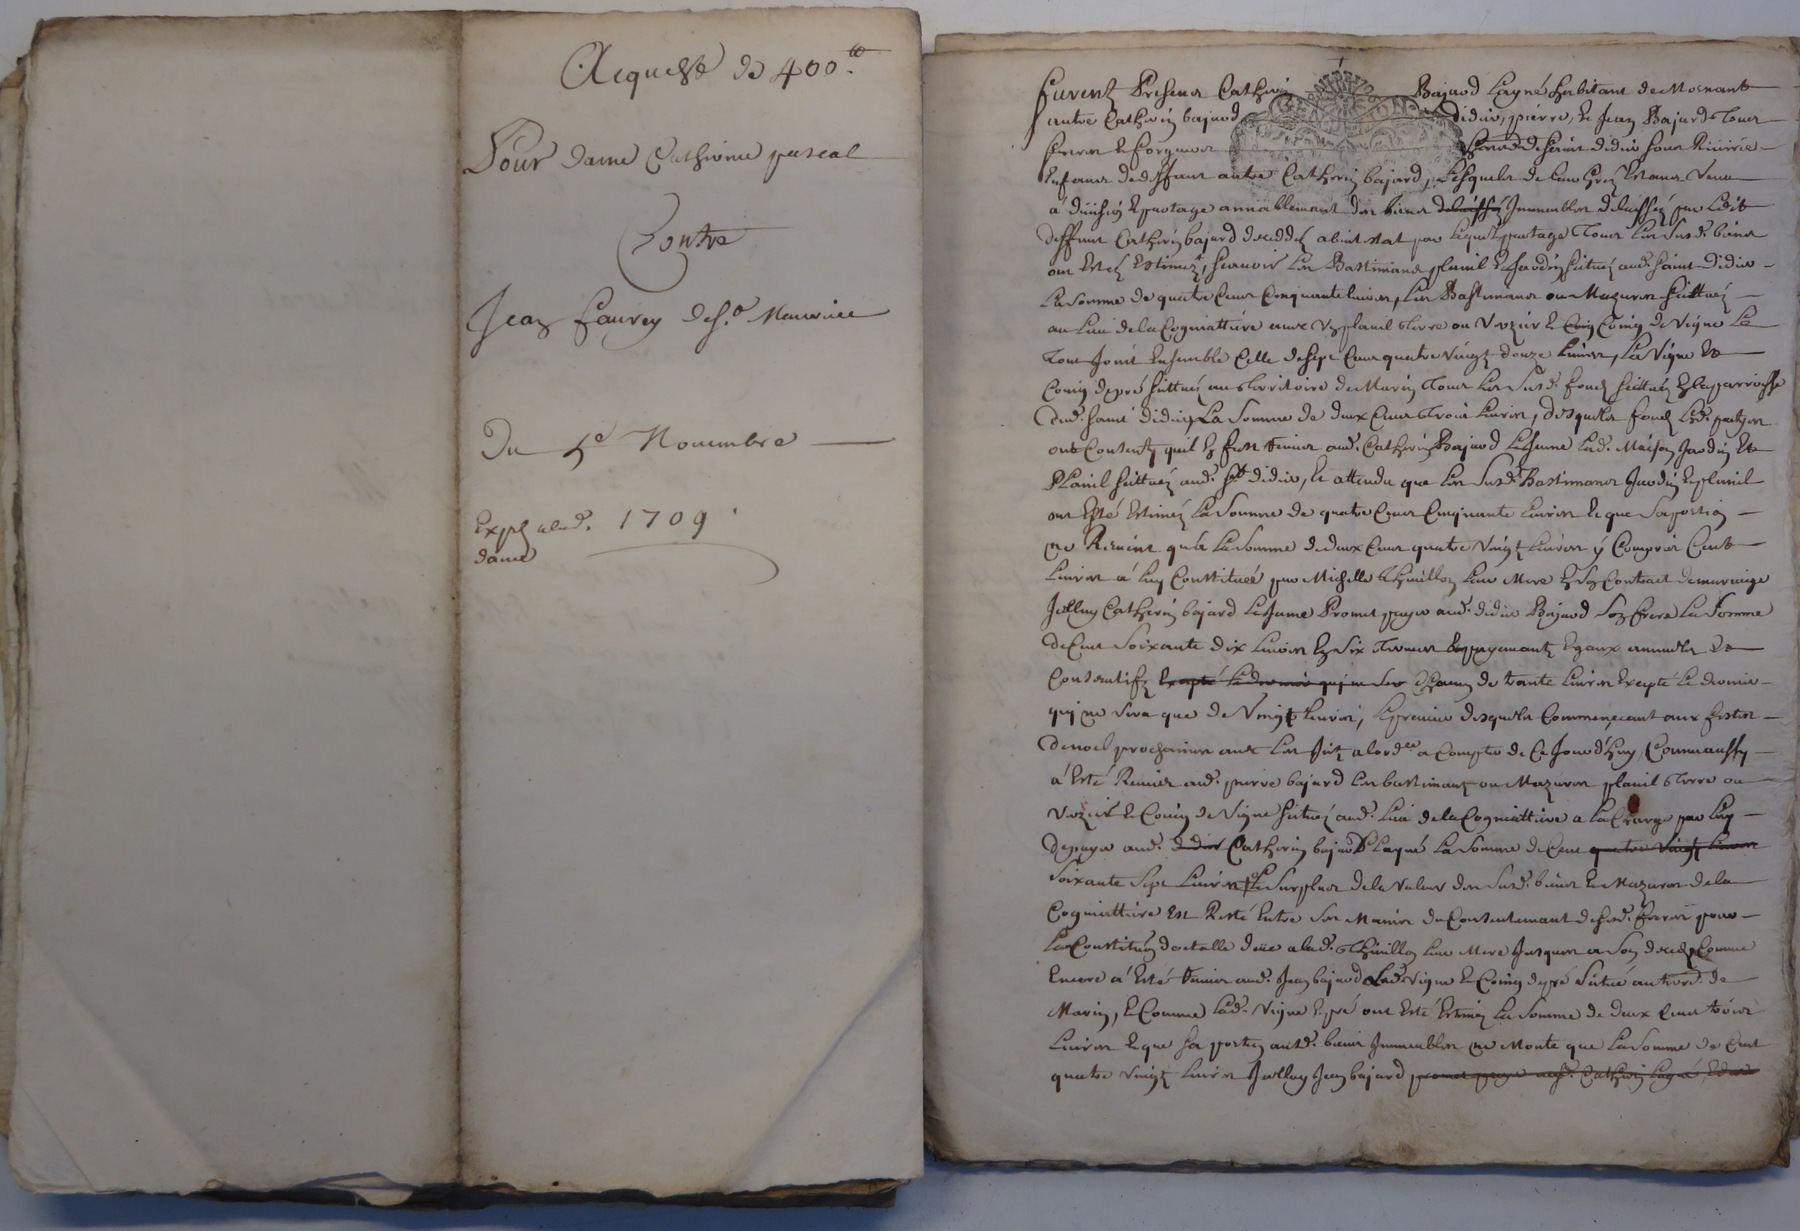 Acqueste de 400 ᵗᵗ
Pour dame Catherine pascal
Contre
Jean faurey de s.t Maurice
Du 5e Novembre
1709
Exp.é a lad.
dame
furent Presens Catherin Bajard Layné habitant de Mornant
autre Catherin bajard didier, pierre, & Jean Bajard Tous
freres de saint didier sous Riverie
Enfans de deffunt autre Catherin bajard, Lesquels de leur gré Estans Venu
á division & partage amiablement des biens delaissés Immeubles delaissés par Ledit
deffunt Catherin bajard decedé abintestat par lequel partage Tous Les susd. biens
ont Estés Estimés, scavoir Les Bastimans plassil & Jardin scittués aud. saint didier
La somme de quatre Cent Cinquante livres, Les Bastimans ou Mazures scittués
au Lieu de la Cogniattiere aux plassil Terre ou Verzier & Coing de Vigne Le
Tout Joint Ensemble Celle de sept Cent quatre vingt douze Livres, La Vigne &
Coing de pré scittués au Territoire de Marin Tous Les susd. fonds scittués En la parroisse
dud. saint didier La somme de deux Cent Trois Livres, desquels fonds Lesd. parties
ont Consenty quil En fust Remis aud. Catherin Bajard Lejeune Lad. Maison Jardin &
Plassil scittués aud. st didier, & attendu que Les susd. Bastimans Jardin & plassil
ont Esté Estimés La somme de quatre Cent Cinquante Livres & que sa portion
ne Revient qu'à La somme de deux Cent quatre Vingt Livres y Compris Cent
Livres á Luy Constituée par Michelle Thivillon Leur Mere En son Contract de mariage
Jcelluy Catherin bajard Lejeune Promet payer aud. didier Bajard son frere La somme
de Cent soixante dix Livres En six Termes & payemants Egaux annuels &
Consecutifs Excepté Le dernier qui ne sera Chacun de trante Livres Excepté Le dernier
qui ne sera que de Vingt Livres, Le premier desquels Commencant aux festes
de noel prochaines a Compter de Ce Jourd'huy Comme aussy
á Esté Remis aud. pierre bajard Les bastimans ou Mazures plassil Terre ou
Verzier & Coing de Vigne scitués aud. Lieu de la Cogniattiere a la Charge par Luy
de payer aud. didier Catherin bajard Layné La somme de Cent quatre Vingt Livres
soixante sept Livres & Le surplus de la Valeur des susd. biens & Mazures de la
Cogniattiere Est Resté Entre ses Mains du Consentement de sesd. freres pour
La Constituõn dotalle düe a lad. Thivillon Leur Mere Jusques a son decedz Comme
Encore á Esté Remis aud. Jean bajard Lad. Vigne & Coing de pré scitué au terr.e de
Marin, & Comme Lad. Vigne & pré ont Esté Estimés La somme de deux Cent trois
Livres & que sa portion ausd. biens Immeubles ne Monte que La somme de Cent
quatre Vingt Livres Jcelluy Jean bajard promet payer aud. Catherin Layné